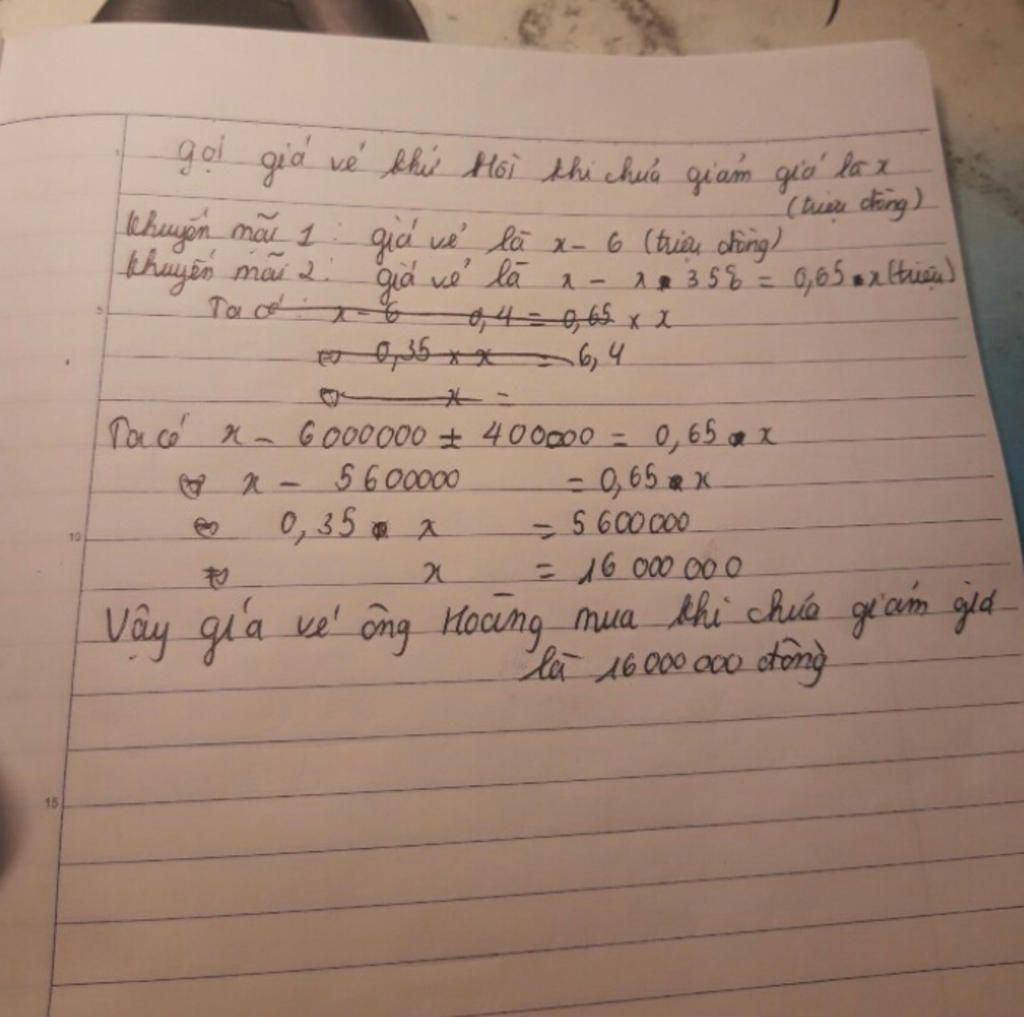 gọi giá vé khứ Hồi khi chưa giảm giá là x
(triệu đồng)
khuyến mãi 1: giá vé là x - 6 (triệu đồng)
khuyến mãi 2: giá vé là x - x . 35% = 0,65 . x (triệu)
Ta có: x - 6 0,4 = 0,65 × x
⇔ 0,35 × x = 6,4
⇔ x =
Ta có x - 6000000 ± 400000 = 0,65 . x
⇔ x - 5600000 = 0,65 . x
⇔ 0,35 . x = 5600000
⇔ x = 16 000 000
Vậy giá vé ông Hoàng mua khi chưa giảm giá
là 16000000 đồng
5
10
15